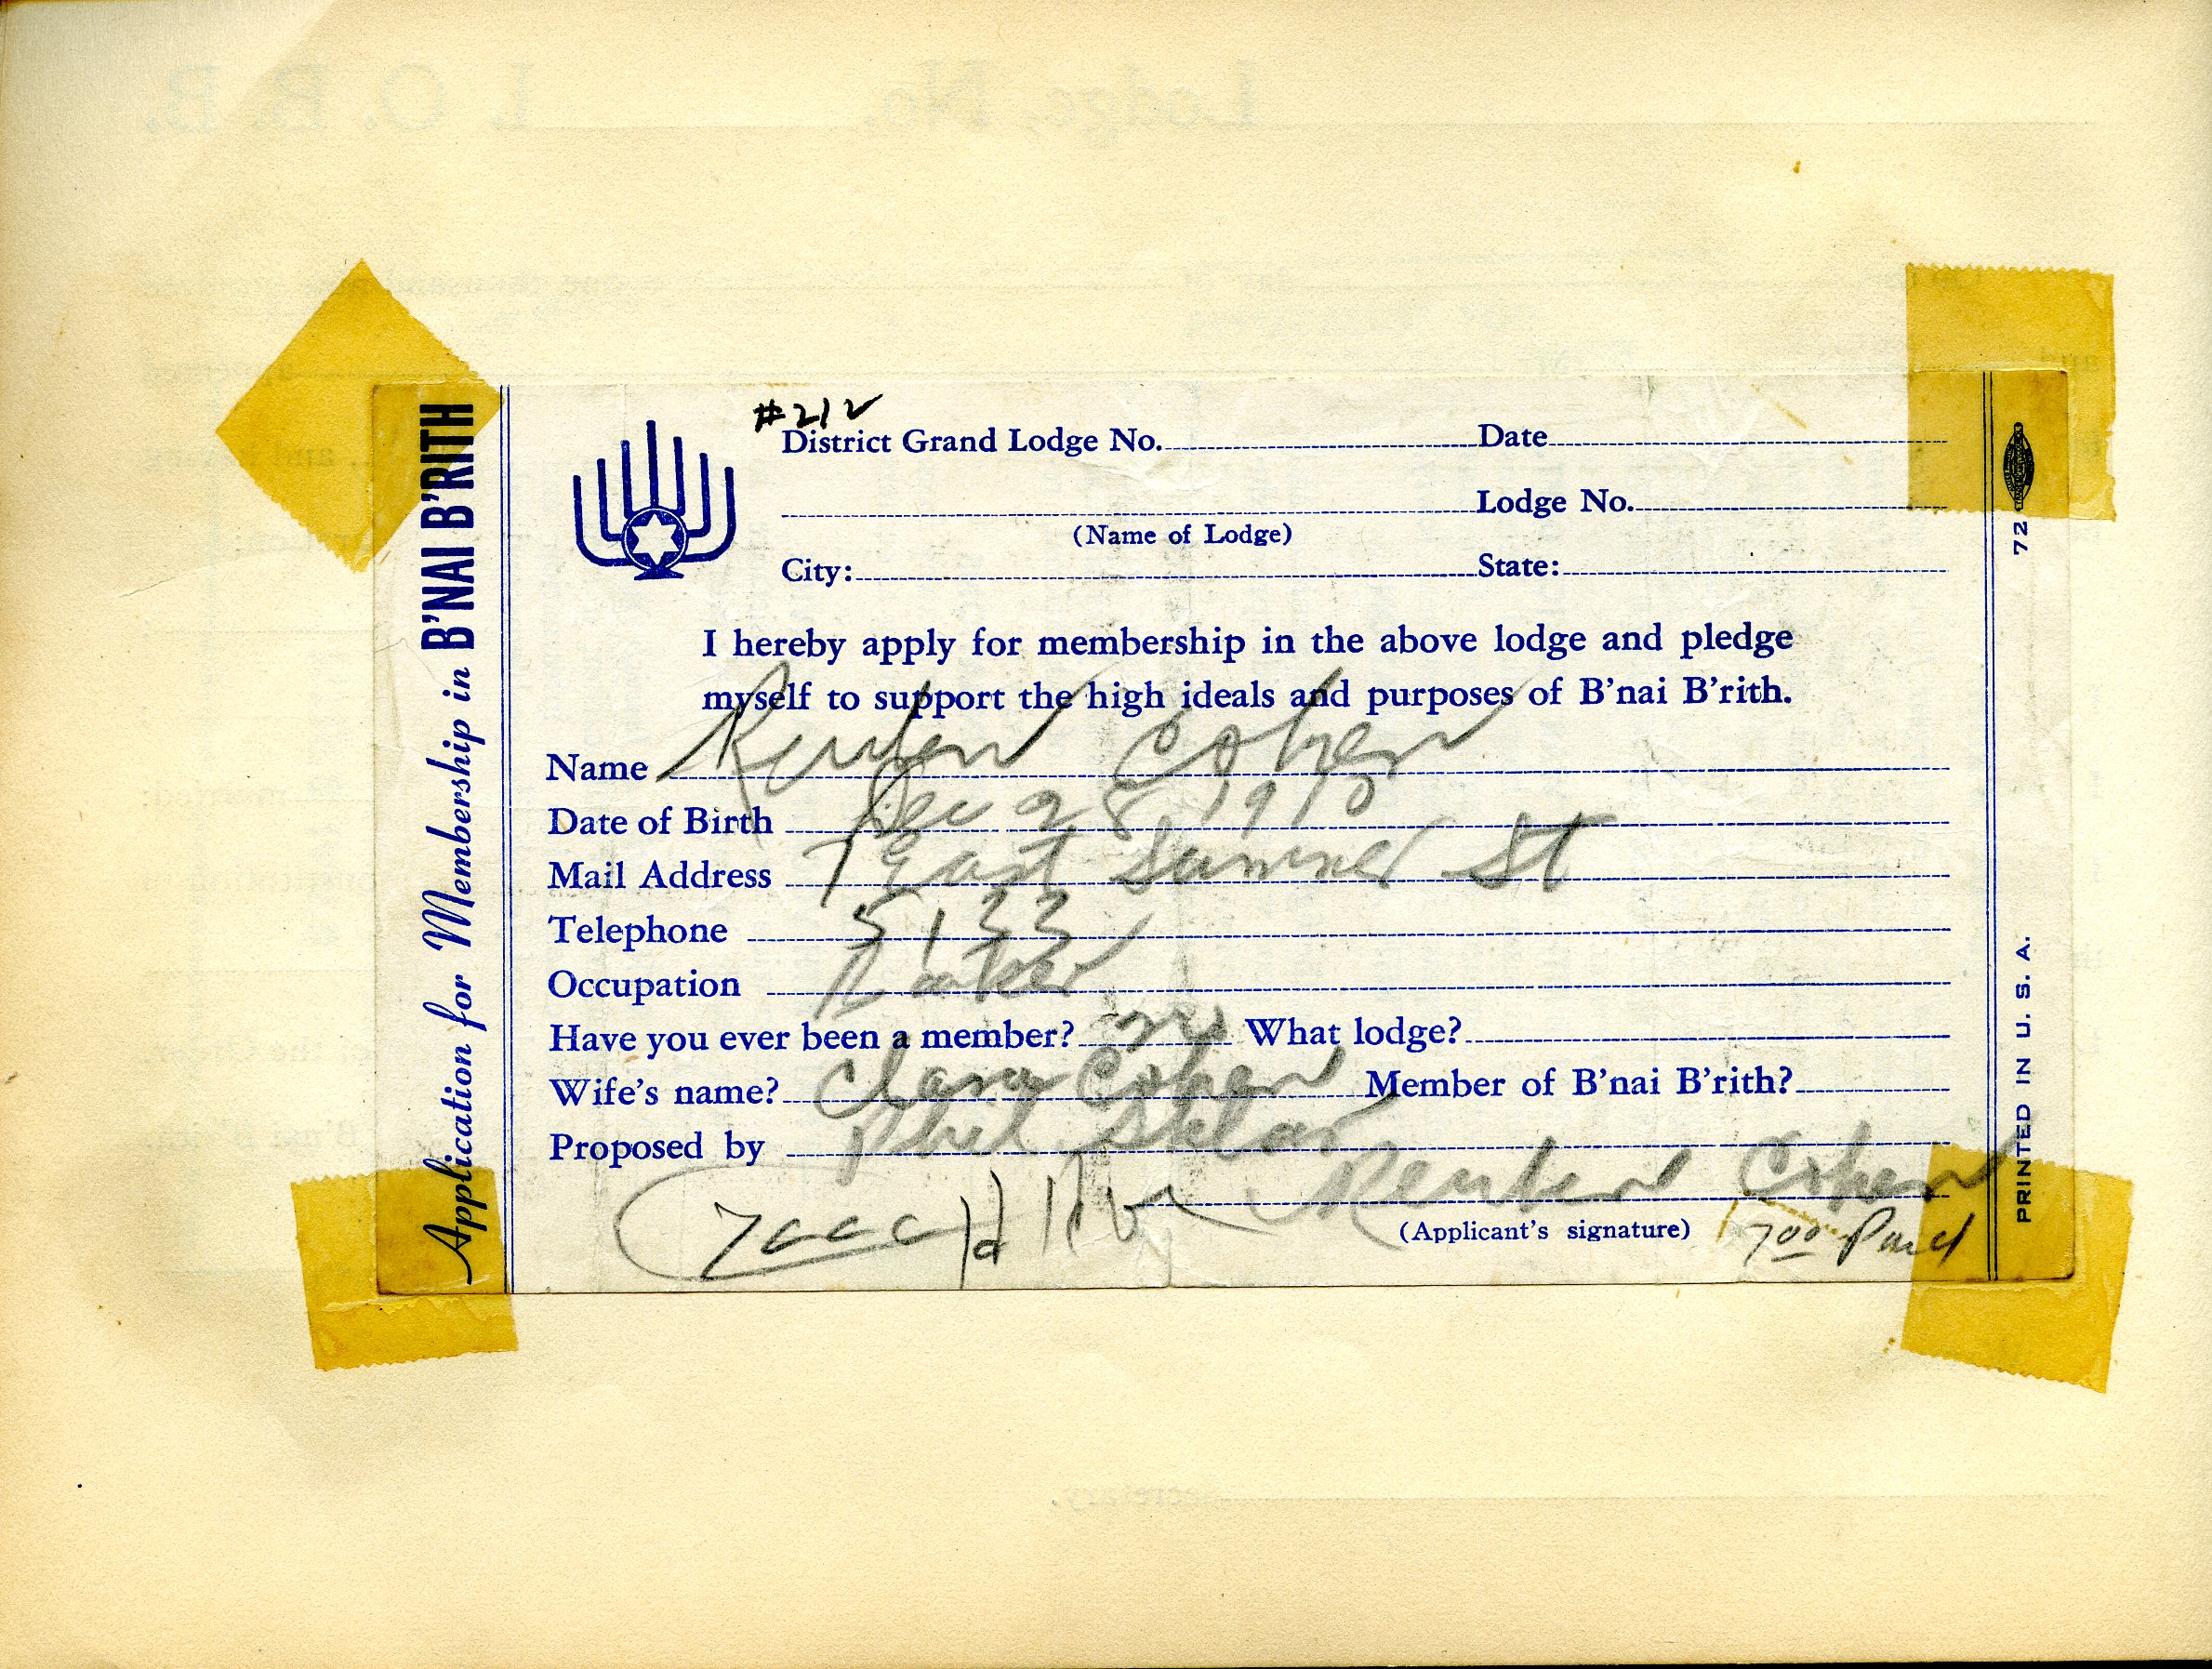 Application for Membership in B'NAI B'RITH
#212
District Grand Lodge No. Date
Lodge No.
(Name of Lodge)
City: State:
I hereby apply for membership in the above lodge and pledge
myself to support the high ideals and purposes of B'nai B'rith.
Name Reuben Cohen
Date of Birth Dec 28 1910
Mail Address 7 East Sumner St
Telephone 5133
Occupation Baker
Have you ever been a member? no What lodge?
Wife's name? Clara Cohen Member of B'nai B'rith?
Proposed by Phil Sklar
Reuben Cohen
(Applicant's signature)
7 00 Paid
72
PRINTED IN U. S. A.
Lodge, No. I. O. B. B.
Secretary.